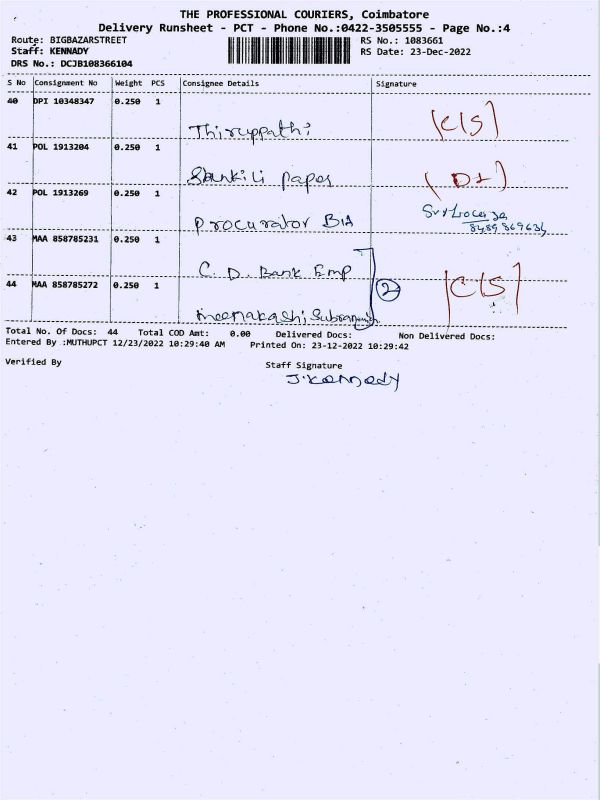 THE PROFESSIONAL COURIERS, Coimbatore
Delivery Runsheet - PCT - Phone No.:0422-3505555 - Page No.:4
Route: BIGBAZARSTREET
RS No.: 1083661
Staff: KENNADY
RS Date: 23-Dec-2022
DRS No.: DCJB108366104
S No Consignment No Weight PCS Consignee Details Signature
40 DPI 10348347 0.250 1
Thiruppathi (C/S)
41 POL 1913204 0.250 1
Sankili papes (D1)
42 POL 1913269 0.250 1
Procurator BIA
43 MAA 858785231 0.250 1
C. D. Bank Emp
44 MAA 858785272 0.250 1
2 C/S
Meenakashi Subramani
Total No. Of Docs: 44 Total COD Amt: 0.00 Delivered Docs: Non Delivered Docs:
Entered By :MUTHUPCT 12/23/2022 10:29:40 AM Printed On: 23-12-2022 10:29:42
Verified By Staff Signature
J.Kennady